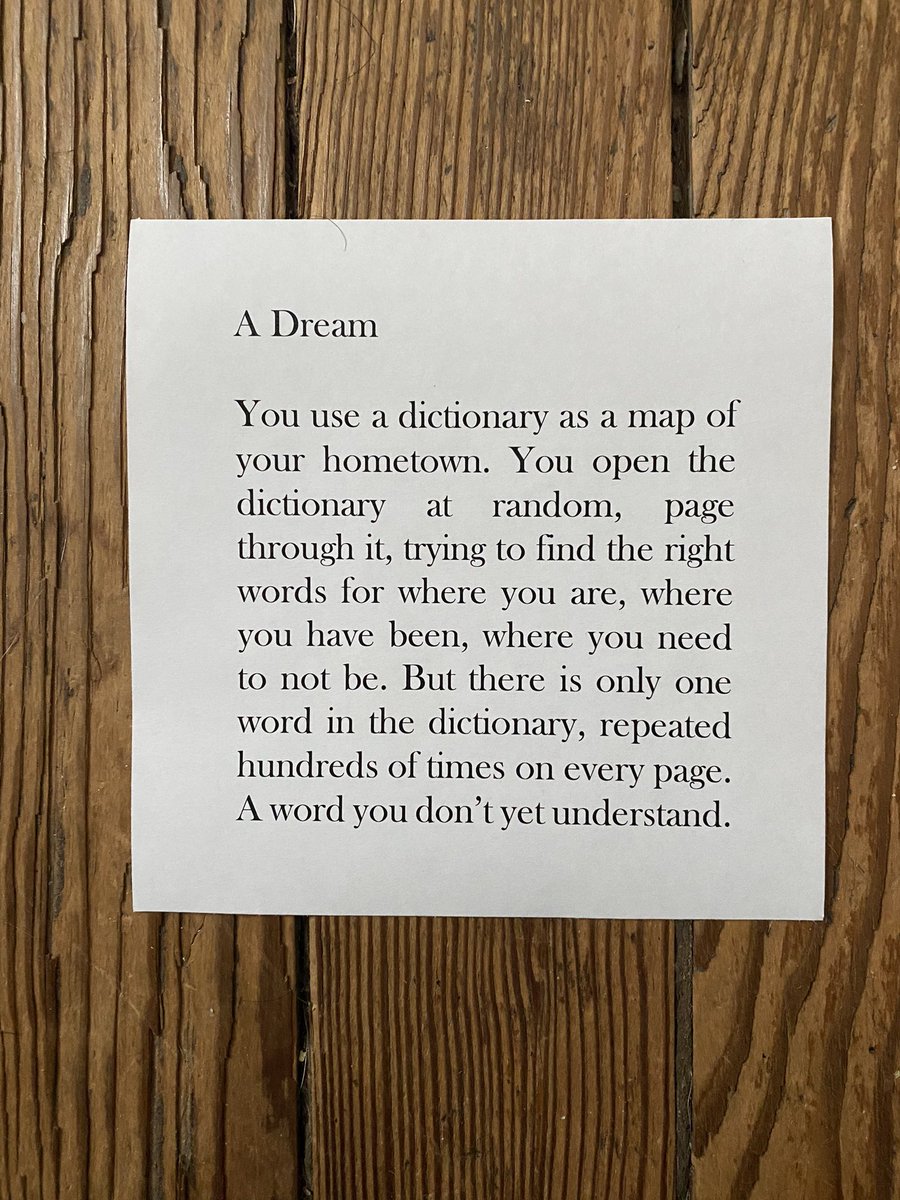 A Dream
You use a dictionary as a map of
your hometown. You open the
dictionary at random, page
through it, trying to find the right
words for where you are, where
you have been, where you need
to not be. But there is only one
word in the dictionary, repeated
hundreds of times on every page.
A word you don’t yet understand.